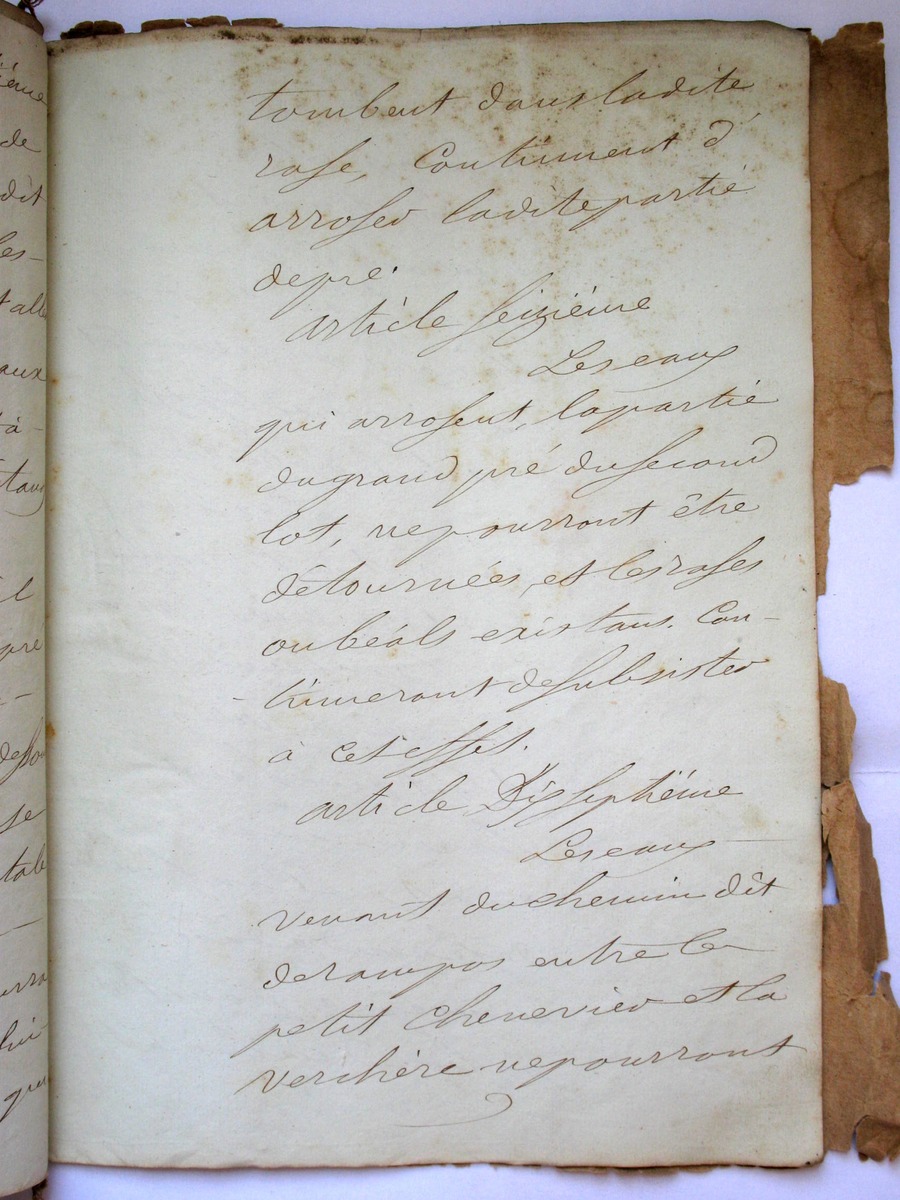 tombent dans la dite
rase, Continuront d'
arroser la dite partie
de pré.
article seizième
Les eaux
qui arrosent, la partie
du grand pré du second
lot, ne pourront être
détournées, et les rases
ou béals existans. Con-
tinueront de subsister
à cet effet.
article Dixseptième
Les eaux
venant du chemin dit
de rampos entre le
petit chenevier et la
verchère ne pourront
ième
de
dit
les-
t all
aux
à-
l
pré
se
tab
que